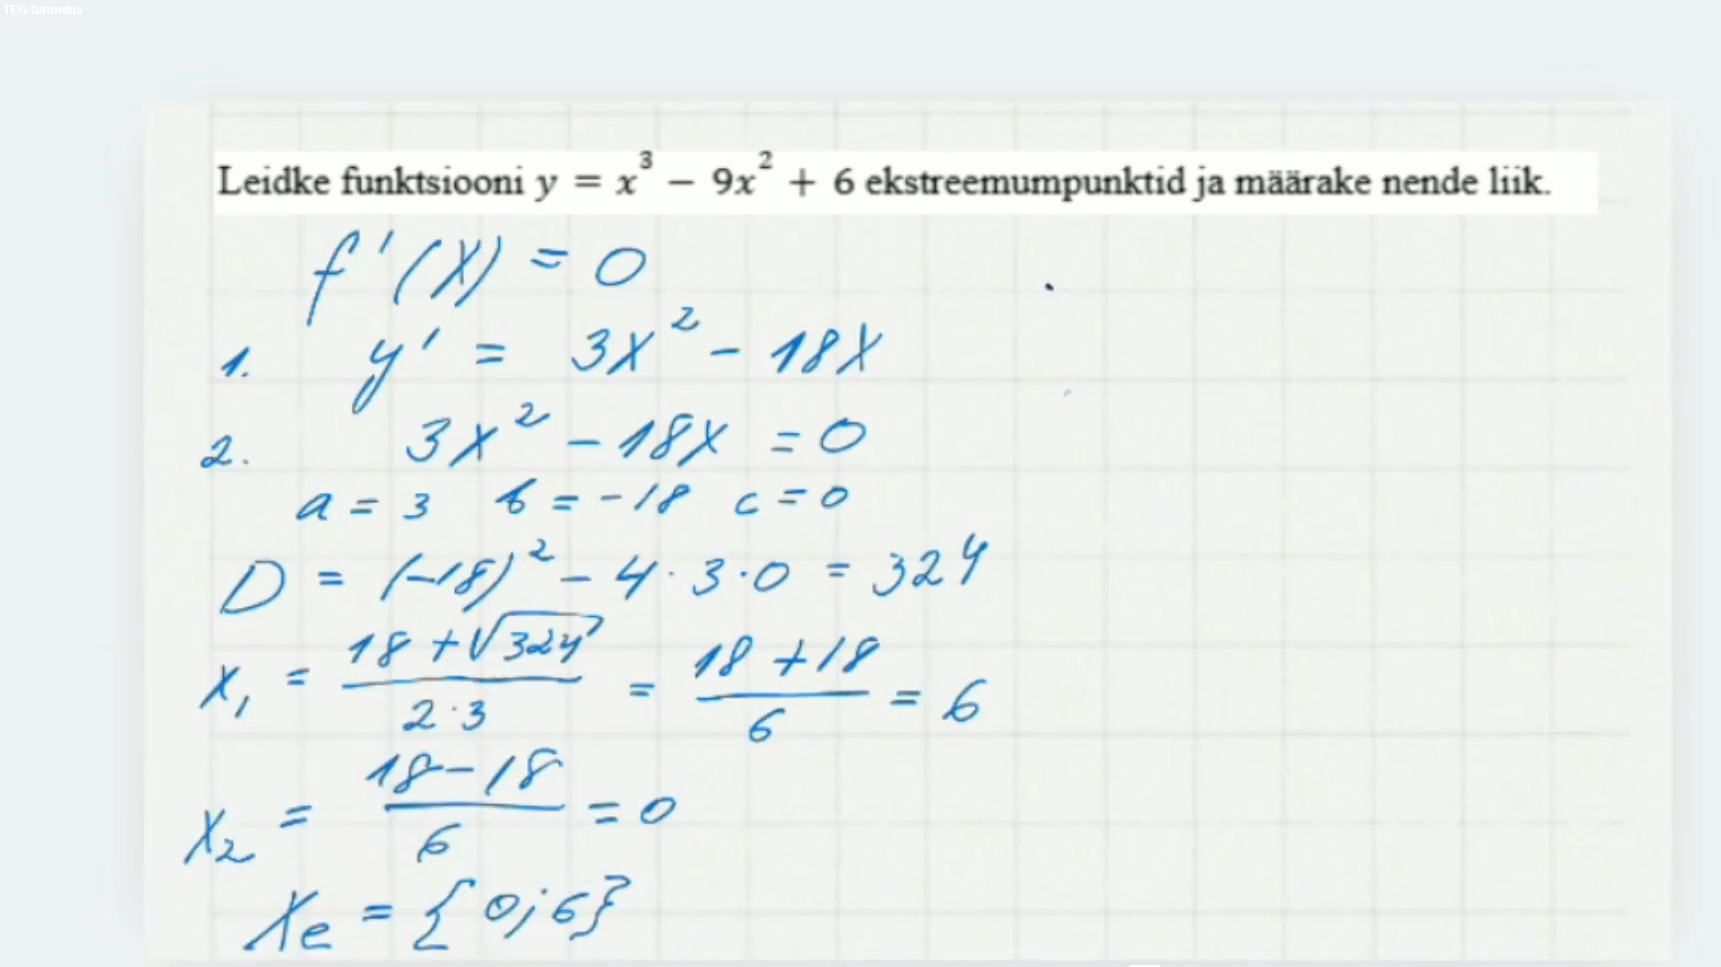 TEG turundus
Leidke funktsiooni y = x³ − 9x² + 6 ekstreemumpunktid ja määrake nende liik.
f'(x) = 0
1. y' = 3x² − 18x
2. 3x² − 18x = 0
a = 3 b = −18 c = 0
D = (−18)² − 4 · 3 · 0 = 324
x₁ = (18 + √324)/(2·3) = (18 + 18)/6 = 6
x₂ = (18 − 18)/6 = 0
Xe = {0; 6}